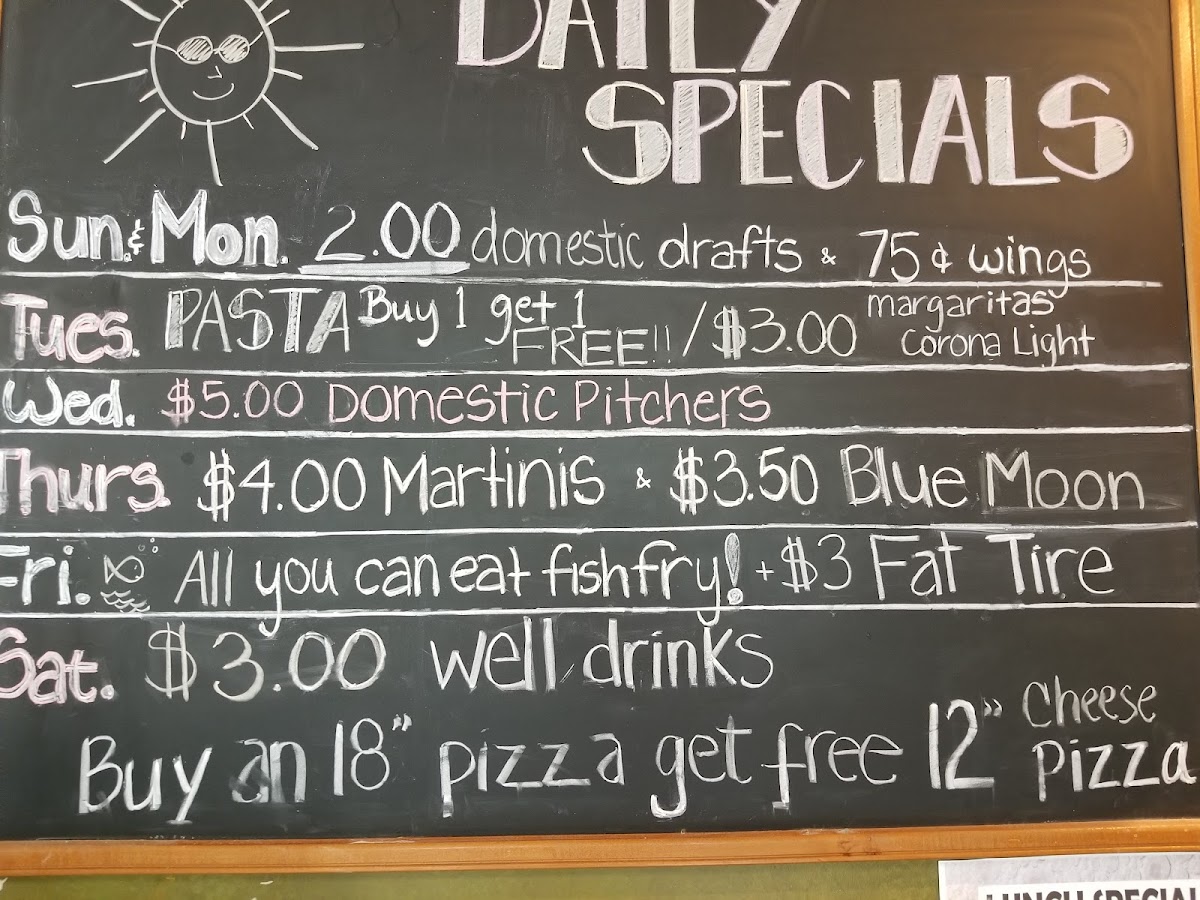 DAILY
SPECIALS
Sun. & Mon. 2.00 domestic drafts & 75¢ wings
Tues. PASTA Buy 1 get 1 FREE!! / $3.00 margaritas Corona Light
Wed. $5.00 Domestic Pitchers
Thurs. $4.00 Martinis & $3.50 Blue Moon
Fri. All you can eat fish fry! + $3 Fat Tire
Sat. $3.00 well drinks
Buy an 18" pizza get free 12" Cheese Pizza
LUNCH SPECIAL